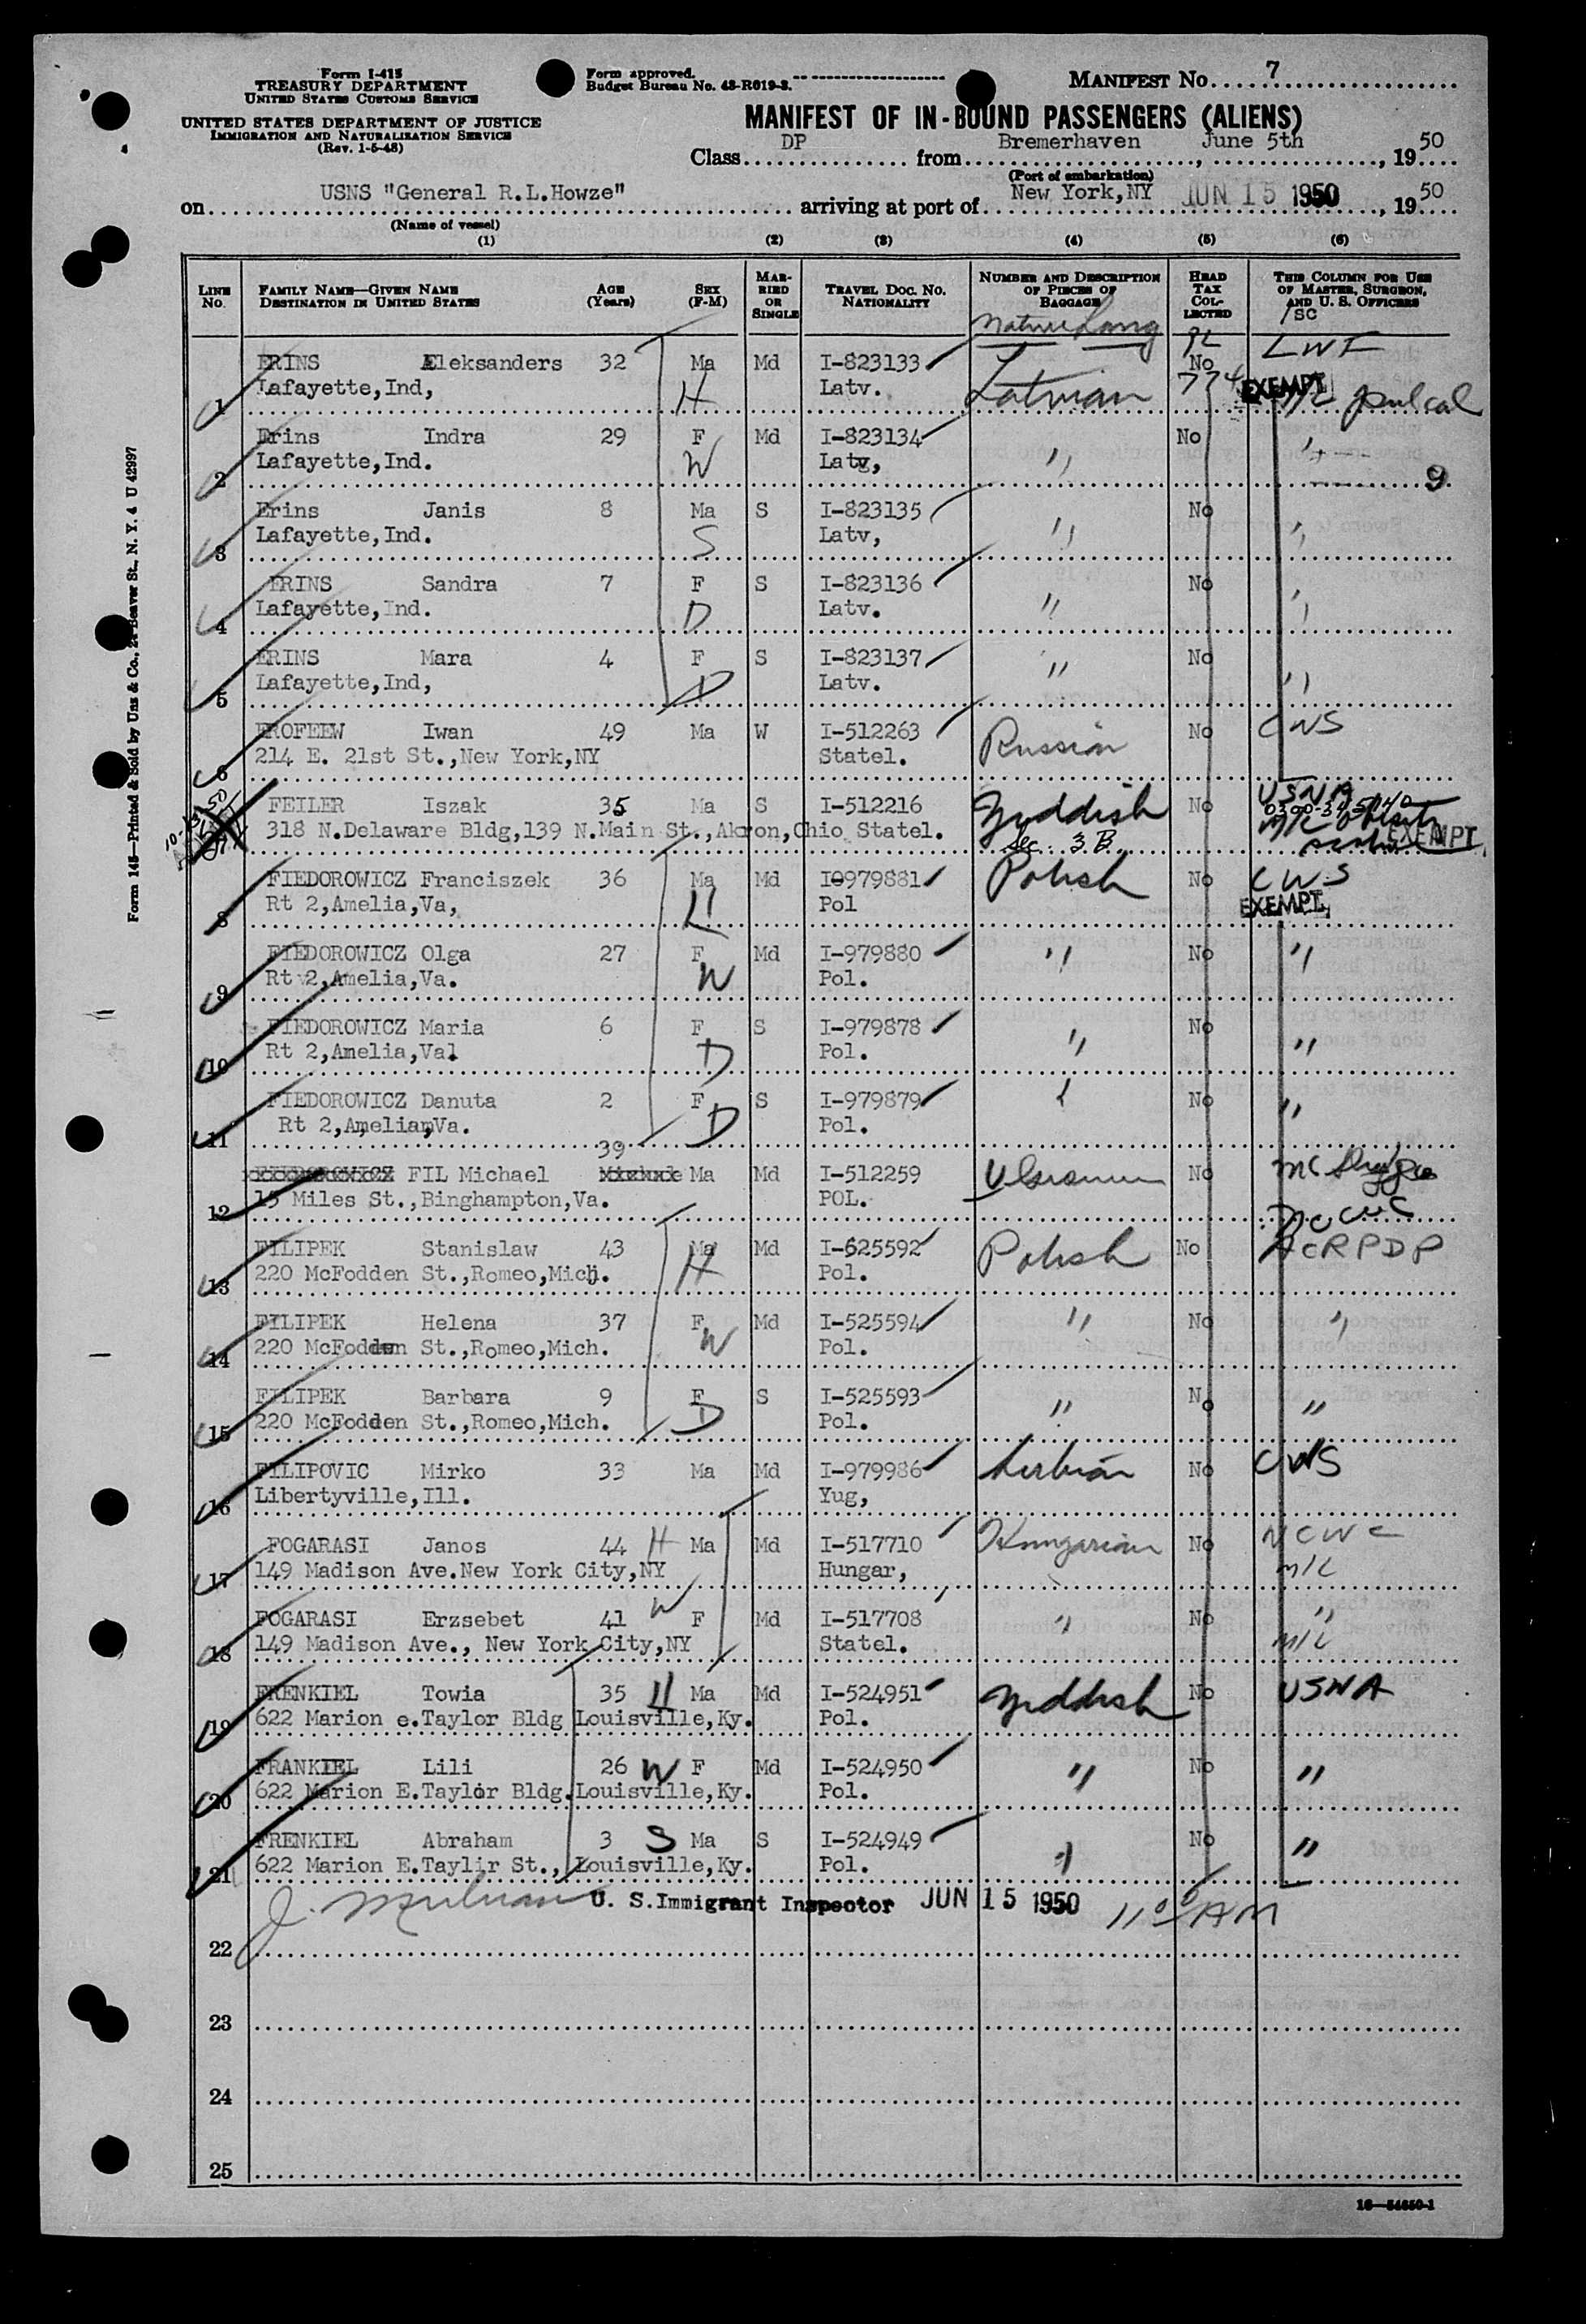 Form I-415
TREASURY DEPARTMENT
UNITED STATES CUSTOMS SERVICE
UNITED STATES DEPARTMENT OF JUSTICE
IMMIGRATION AND NATURALIZATION SERVICE
(Rev. 1-5-48)
Form approved.
Budget Bureau No. 43-R019-3.
MANIFEST No. 7
MANIFEST OF IN-BOUND PASSENGERS (ALIENS)
Class DP from Bremerhaven, June 5th, 1950
(Port of embarkation)
on USNS "General R.L.Howze" arriving at port of New York,NY JUN 15 1950, 1950
(Name of vessel)
(1) (2) (3) (4) (5) (6)
LINE No. FAMILY NAME—GIVEN NAME DESTINATION IN UNITED STATES AGE (Years) SEX (F-M) MARRIED OR SINGLE TRAVEL DOC. NO. NATIONALITY NUMBER AND DESCRIPTION OF PIECES OF BAGGAGE HEAD TAX COLLECTED THIS COLUMN FOR USE OF MASTER, SURGEON, AND U. S. OFFICERS
Native Lang /SC
1 ERINS Aleksanders 32 Ma Md I-823133 No LWF
Lafayette,Ind, H Latv. Latvian 774 EXEMPT
2 Erins Indra 29 F Md I-823134 No "
Lafayette,Ind. W Latv, " 9
3 Erins Janis 8 Ma S I-823135 No
Lafayette,Ind. S Latv, " "
4 ERINS Sandra 7 F S I-823136 No "
Lafayette,Ind. D Latv. "
5 ERINS Mara 4 F S I-823137 No
Lafayette,Ind, D Latv. " "
6 EROFEEW Iwan 49 Ma W I-512263 Russian No CWS
214 E. 21st St.,New York,NY Statel.
FEILER Iszak 35 Ma S I-512216 Yiddish No USNA
318 N.Delaware Bldg,139 N.Main St.,Akron,Ohio Statel. Sec. 3 B EXEMPT
8 FIEDOROWICZ Franciszek 36 Ma Md I0979881 Polish No CWS
Rt 2,Amelia,Va, H Pol EXEMPT
9 FIEDOROWICZ Olga 27 F Md I-979880 " No "
Rt 2,Amelia,Va. W Pol.
10 FIEDOROWICZ Maria 6 F S I-979878 " No "
Rt 2,Amelia,Val D Pol.
11 FIEDOROWICZ Danuta 2 F S I-979879 No "
Rt 2,Amelia,Va. D Pol.
39
12 FIL Michael Ma Md I-512259 No
15 Miles St.,Binghampton,Va. POL.
13 FILIPEK Stanislaw 43 Ma Md I-625592 Polish No ACRPDP
220 McFodden St.,Romeo,Mich. H Pol.
14 FILIPEK Helena 37 F Md I-525594 " No "
220 McFodden St.,Romeo,Mich. W Pol.
15 FILIPEK Barbara 9 F S I-525593 " No "
220 McFodden St.,Romeo,Mich. D Pol.
16 FILIPOVIC Mirko 33 Ma Md I-979986 Serbian No CWS
Libertyville,Ill. Yug,
17 FOGARASI Janos 44 H Ma Md I-517710 Hungarian No NCWC
149 Madison Ave.New York City,NY Hungar, M/C
18 FOGARASI Erzsebet 41 W F Md I-517708 " No "
149 Madison Ave., New York City,NY Statel. M/C
19 FRENKIEL Towia 35 H Ma Md I-524951 Yiddish No USNA
622 Marion e.Taylor Bldg Louisville,Ky. Pol.
20 FRANKIEL Lili 26 W F Md I-524950 " No "
622 Marion E.Taylor Bldg.Louisville,Ky. Pol.
21 FRENKIEL Abraham 3 S Ma S I-524949 " No "
622 Marion E.Taylir St., Louisville,Ky. Pol.
U. S.Immigrant Inspector JUN 15 1950 11 00 AM
22
23
24
25
16—54650-1
Form 145—Printed & Sold by Unz & Co., 24 Beaver St., N. Y. 4 U 42997